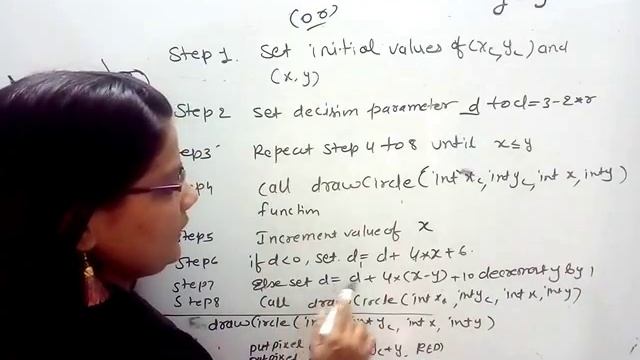 (or)
Step 1. Set initial values of (xc, yc) and
(x, y)
Step 2 set decision parameter d to d=3-2*r
tep3 Repeat step 4 to 8 until x≤y
tep4 call drawCircle(int xc, int yc, int x, int y)
function
tep5 Increment value of x
tep6 if d<0, set d= d+ 4*x+6.
step7 Else set d= d + 4*(x-y)+10 decrement y by 1
Step8 Call drawCircle(int xc, int yc, int x, int y)
drawCircle( int yc, int x, int y)
putpixel yc+y, RED)